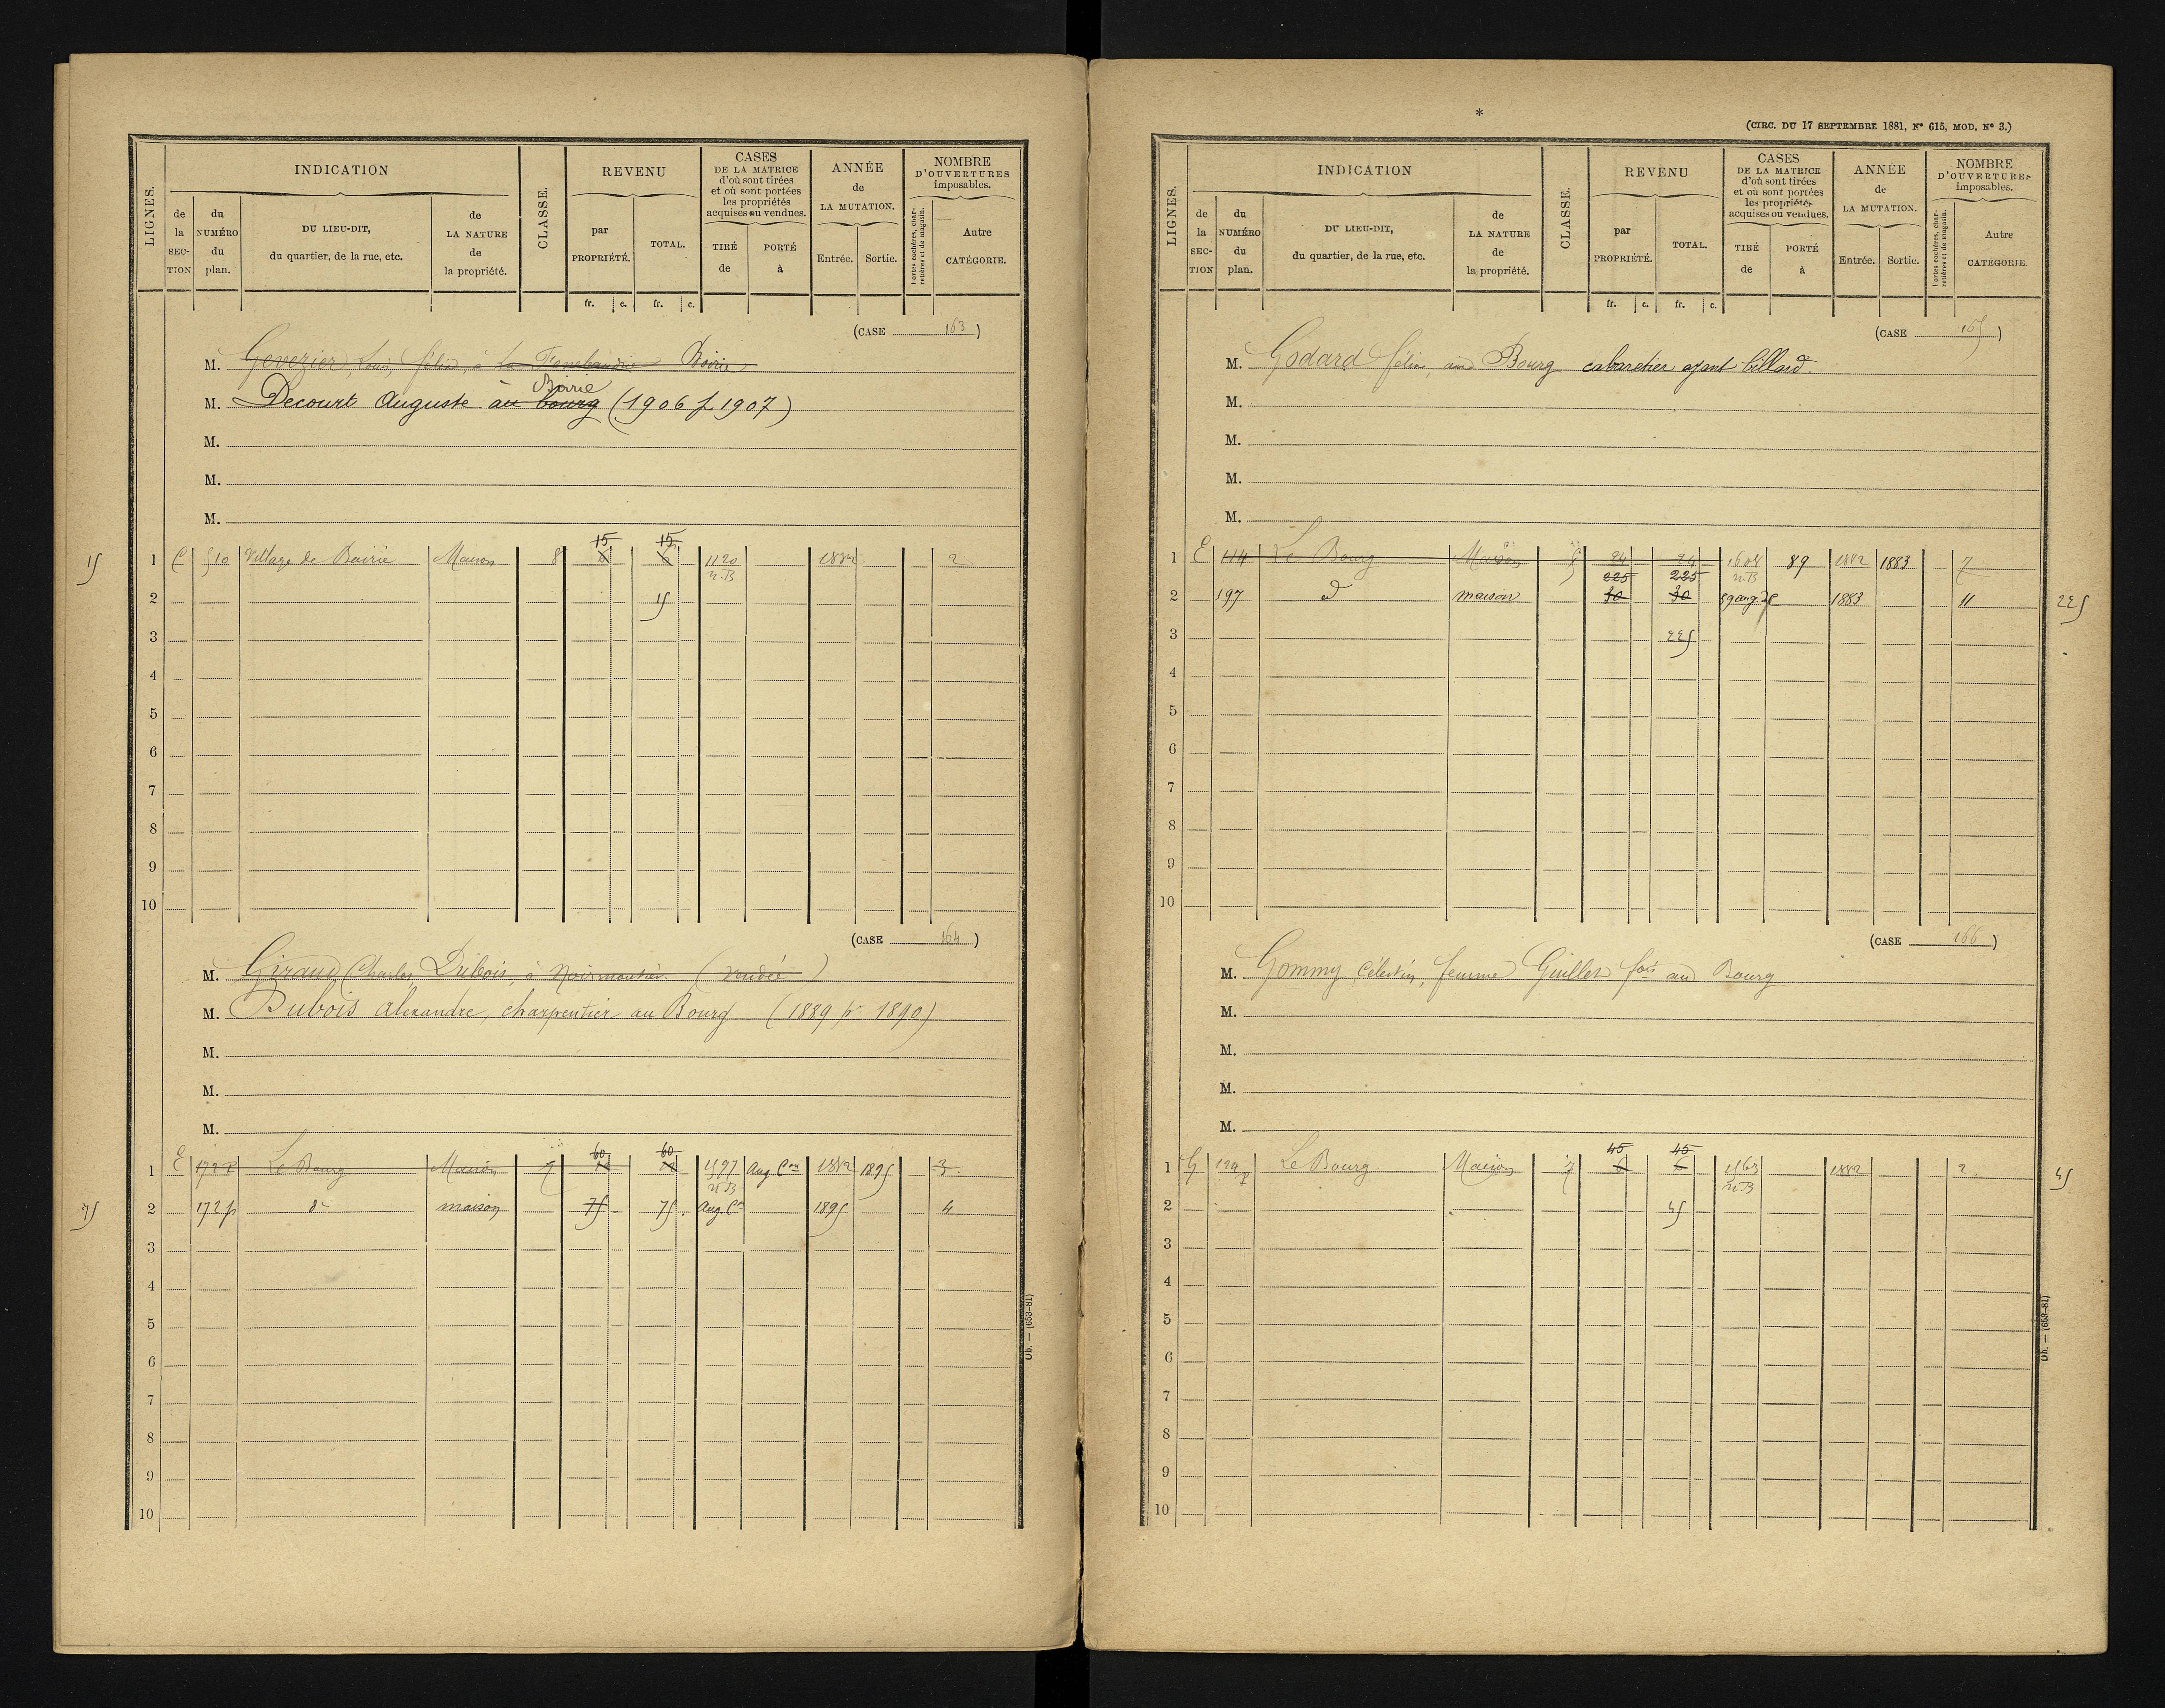 LIGNES.
INDICATION
de la SECTION
du NUMÉRO du plan.
DU LIEU-DIT, du quartier, de la rue, etc.
de LA NATURE de la propriété.
CLASSE.
REVENU
par PROPRIÉTÉ.
TOTAL.
fr. c. fr. c.
CASES DE LA MATRICE d'où sont tirées et où sont portées les propriétés acquises ou vendues.
TIRÉ de
PORTÉ à
ANNÉE de LA MUTATION.
Entrée. Sortie.
NOMBRE D'OUVERTURES imposables.
Portes cochères, charretières et de magasin.
Autre CATÉGORIE.
(CASE 163)
M. Genezier, Louis, félix, à Boirie
Boirie
M. Decourt Auguste au bourg (1906 p 1907)
M.
M.
M.
15 15
15 1 C 510 Village de Boirie Maison 8 6 6 1120 1882 2
n.B
2 15
3
4
5
6
7
8
9
10
(CASE 164)
M. Giraud Charles Dubois, à Noirmoutier (Vendée)
M. Dubois alexandre, charpentier au Bourg (1889 pr 1890)
M.
M.
M.
60 60
1 E 172 P Le Bourg Maison 7 1497 Aug. Con 1882 1895 3
n.B
75 2 172 p do maison 75 75 Aug. Con 1895 4
3
4
5
6
7
8
9
10
Ob. — (653-81)
*
(CIRC. DU 17 SEPTEMBRE 1881, N° 615, MOD. N° 3.)
LIGNES.
INDICATION
de la SECTION
du NUMÉRO du plan.
DU LIEU-DIT, du quartier, de la rue, etc.
de LA NATURE de la propriété.
CLASSE.
REVENU
par PROPRIÉTÉ.
TOTAL.
fr. c. fr. c.
CASES DE LA MATRICE d'où sont tirées et où sont portées les propriétés acquises ou vendues.
TIRÉ de
PORTÉ à
ANNÉE de LA MUTATION.
Entrée. Sortie.
NOMBRE D'OUVERTURES imposables.
Portes cochères, charretières et de magasin.
Autre CATÉGORIE.
(CASE 165)
M. Godard félix, au Bourg cabaretier ayant billard.
M.
M.
M.
M.
1 E 114 Le Bourg Maison 5 24 24 1608 89 1882 1883 7
225 225 n.B
2 197 d maison 30 30 59 aug. 1883 11 225
3 225
4
5
6
7
8
9
10
(CASE 166)
M. Gommy, Célestin, femme Guillet fois au Bourg
M.
M.
M.
M.
45 45
1 G 129 P Le Bourg Maison 7 6 6 1563 1882 2 45
n.B
2 45
3
4
5
6
7
8
9
10
Ob. — (653-81)